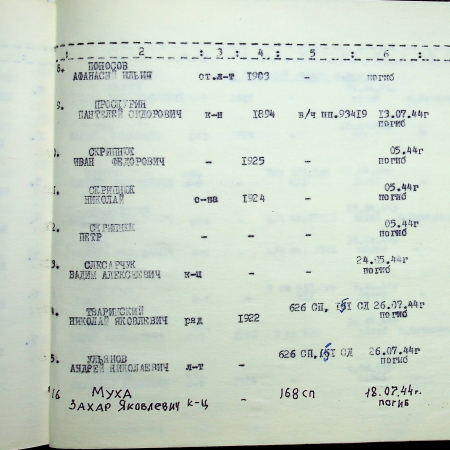 : 2 : 3 : 4 : 5 : 6 :
8. ПОПОСОВ
АФАНАСИЙ ИЛЬИЧ ст.л-т 1903 - погиб
9. ПРОСКУРИН
ПАНТЕЛЕЙ СИДОРОВИЧ к-н 1894 в/ч пп.93419 13.07.44г
погиб
0. СКРИПНЮК 05.44г
ИВАН ФЕДОРОВИЧ - 1925 - погиб
1. СКРИПНЮК 05.44г
НИКОЛАЙ с-на 1924 - погиб
2. СКРИПНЮК 05.44г
ПЕТР - - - погиб
3. СЛЕСАРЧУК 24.05.44г
ВАДИМ АЛЕКСЕЕВИЧ к-ц - - погиб
4. ТВАРИНСКИЙ 626 СП, 151 СД 26.07.44г
НИКОЛАЙ ЯКОВЛЕВИЧ ряд 1922 погиб
5. УЛЬЯНОВ 626 СП, 151 СД 26.07.44г
АНДРЕЙ НИКОЛАЕВИЧ л-т - погиб
16 МУХА 168 сп 18.07.44г.
ЗАХАР ЯКОВЛЕВИЧ к-ц - погиб